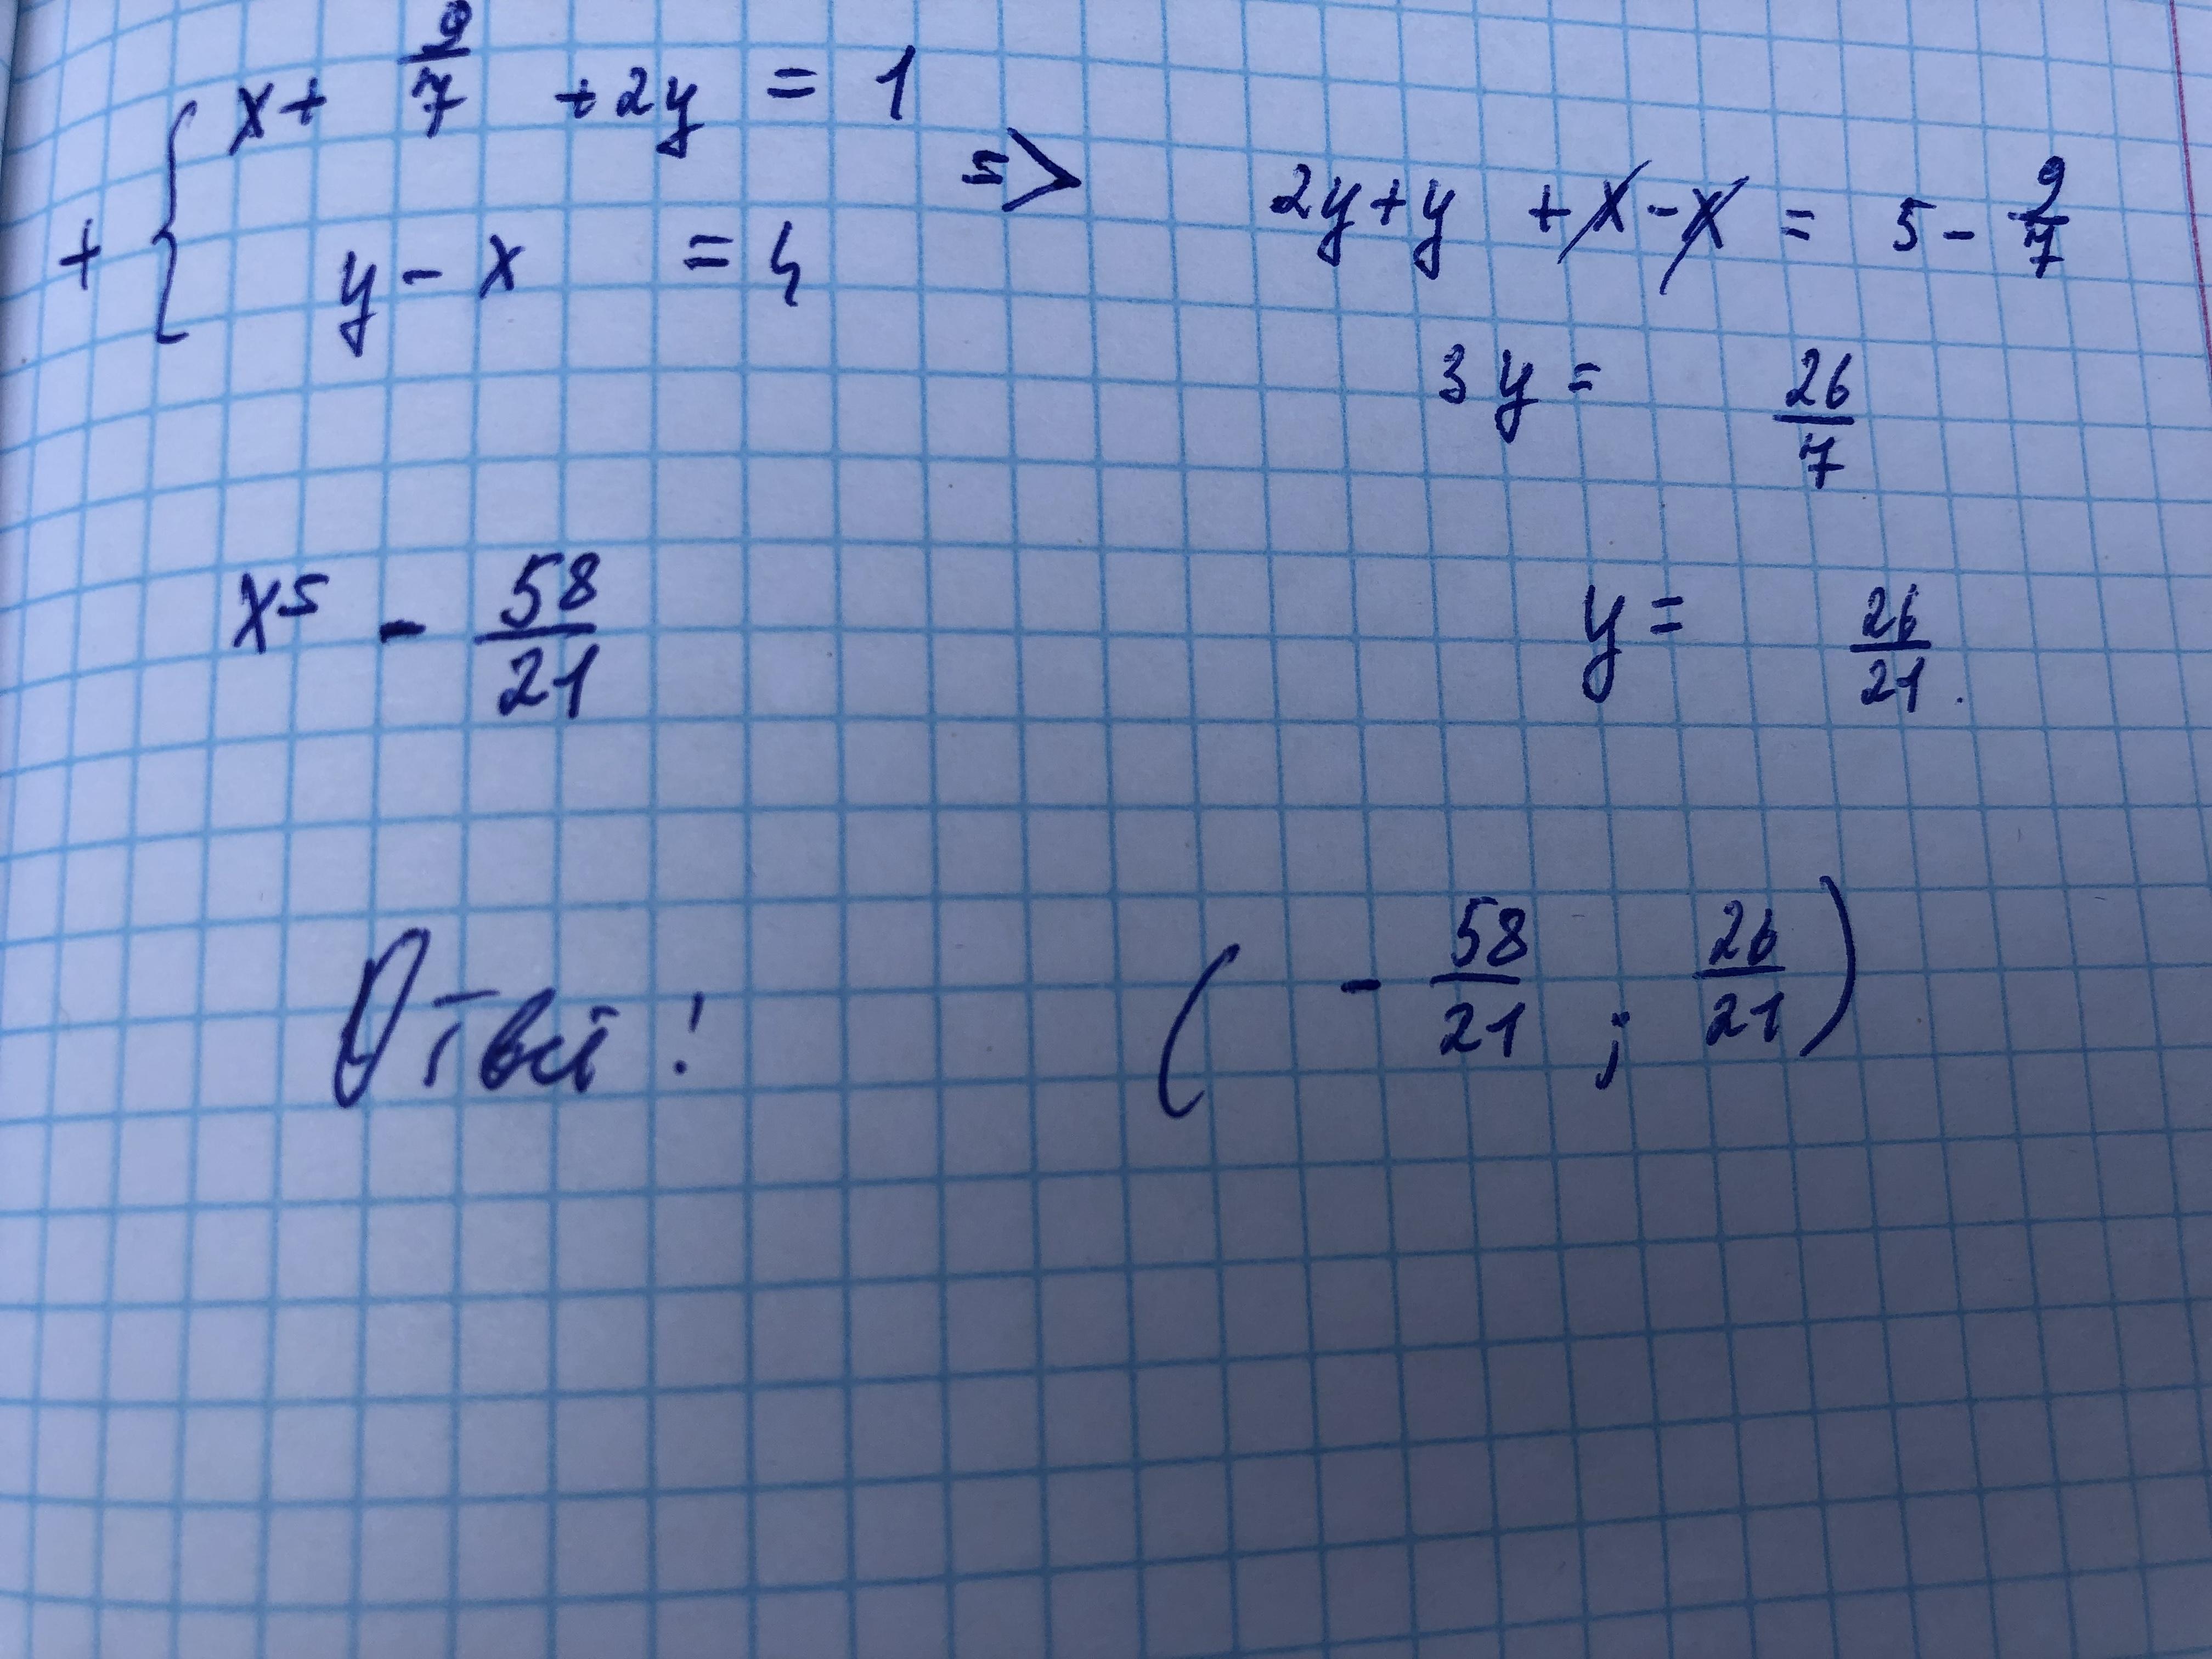 x + 9/7 + 2y = 1
+ { =>
y - x = 4
2y + y + x - x = 5 - 9/7
3y = 26/7
x = - 58/21
y = 26/21.
Ответ: (- 58/21 ; 26/21)